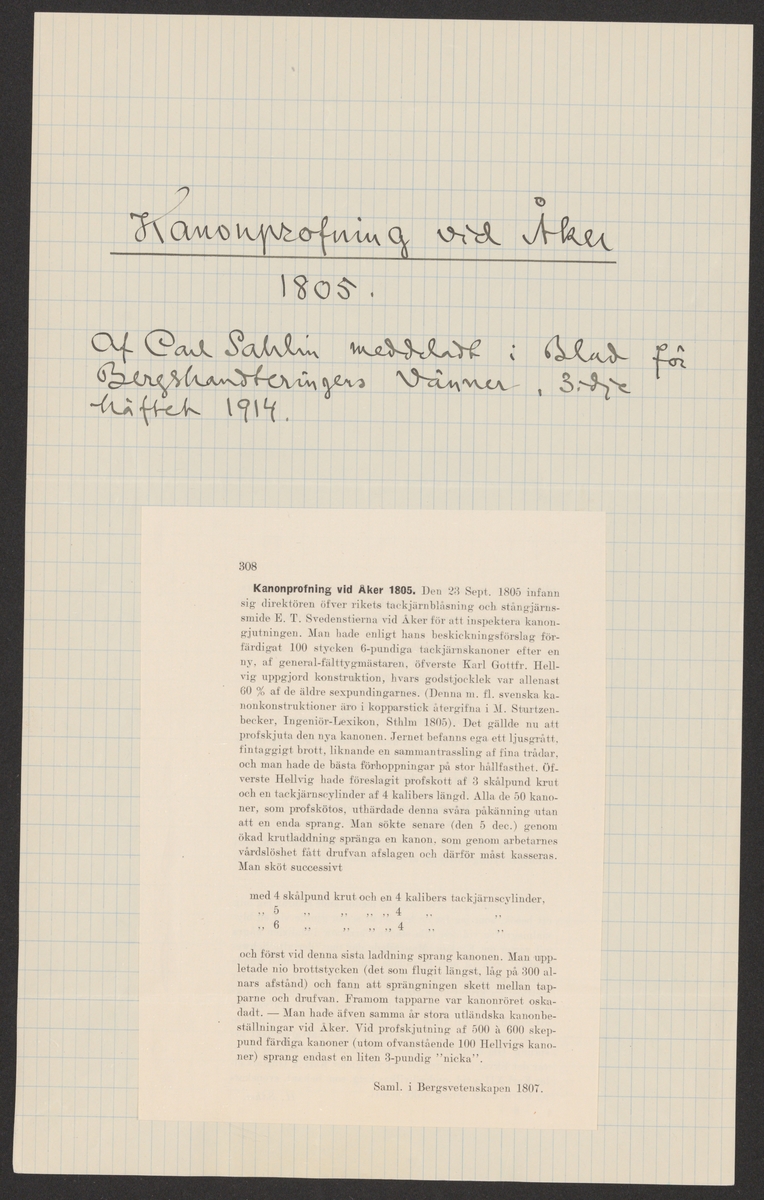 Kanonprofning vid Åker
1805.
Af Carl Sahlin meddeladt i Blad för
Bergshandteringens Vänner, 3:dje
häftet 1914.
308
Kanonprofning vid Åker 1805. Den 23 Sept. 1805 infann
sig direktören öfver rikets tackjärnblåsning och stångjärns-
smide E. T. Svedenstierna vid Åker för att inspektera kanon-
gjutningen. Man hade enligt hans beskickningsförslag för-
färdigat 100 stycken 6-pundiga tackjärnskanoner efter en
ny, af general-fälttygmästaren, öfverste Karl Gottfr. Hell-
vig uppgjord konstruktion, hvars godstjocklek var allenast
60 % af de äldre sexpundingarnes. (Denna m. fl. svenska ka-
nonkonstruktioner äro i kopparstick återgifna i M. Sturtzen-
becker, Ingeniör-Lexikon, Sthlm 1805). Det gällde nu att
profskjuta den nya kanonen. Jernet befanns ega ett ljusgrått,
fintaggigt brott, liknande en sammantrassling af fina trådar,
och man hade de bästa förhoppningar på stor hållfasthet. Öf-
verste Hellvig hade föreslagit profskott af 3 skålpund krut
och en tackjärnscylinder af 4 kalibers längd. Alla de 50 kano-
ner, som profskötos, uthärdade denna svåra påkänning utan
att en enda sprang. Man sökte senare (den 5 dec.) genom
ökad krutladdning spränga en kanon, som genom arbetarnes
vårdslöshet fått drufvan afslagen och därför måst kasseras.
Man sköt successivt
med 4 skålpund krut och en 4 kalibers tackjärnscylinder,
,, 5 ,, ,, ,, ,, 4 ,, ,,
,, 6 ,, ,, ,, ,, 4 ,, ,,
och först vid denna sista laddning sprang kanonen. Man upp-
letade nio brottstycken (det som flugit längst, låg på 300 al-
nars afstånd) och fann att sprängningen skett mellan tap-
parne och drufvan. Framom tapparne var kanonröret oska-
dadt. — Man hade äfven samma år stora utländska kanonbe-
ställningar vid Åker. Vid profskjutning af 500 à 600 skep-
pund färdiga kanoner (utom ofvanstående 100 Hellvigs kano-
ner) sprang endast en liten 3-pundig ”nicka”.
Saml. i Bergsvetenskapen 1807.